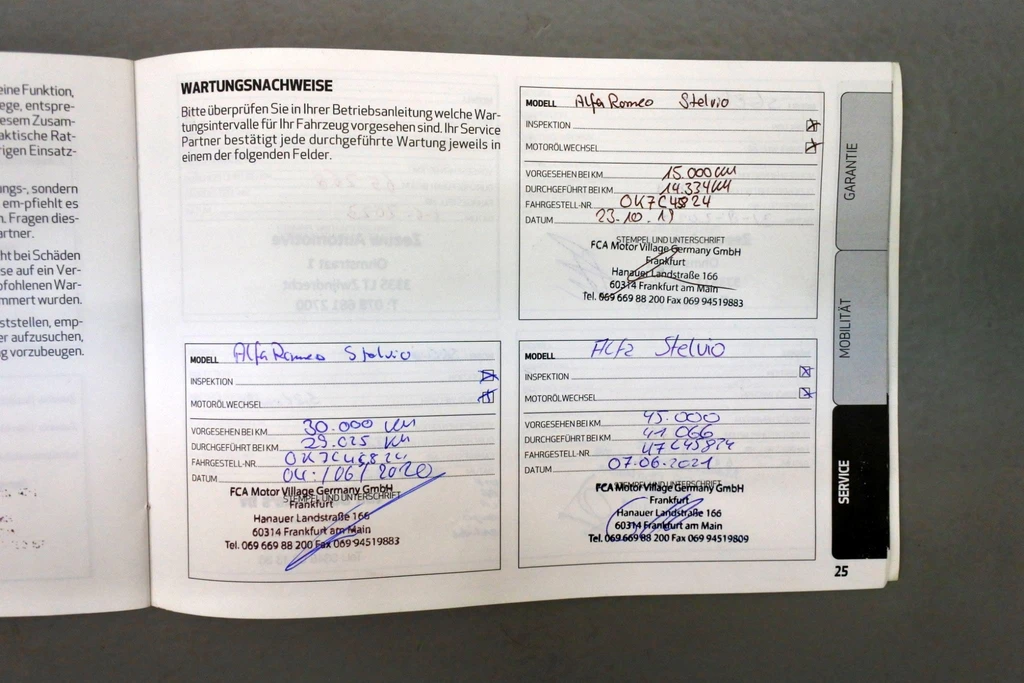 eine Funktion,
ege, entspre-
esem Zusam-
aktische Rat-
rigen Einsatz-
ngs-, sondern
em-pfiehlt es
n. Fragen dies-
artner.
ht bei Schäden
se auf ein Ver-
pfohlenen War-
mmert wurden.
ststellen, emp-
er aufzusuchen,
g vorzubeugen.
WARTUNGSNACHWEISE
Bitte überprüfen Sie in Ihrer Betriebsanleitung welche War-
tungsintervalle für Ihr Fahrzeug vorgesehen sind. Ihr Service
Partner bestätigt jede durchgeführte Wartung jeweils in
einem der folgenden Felder.
MODELL Alfa Romeo Stelvio
INSPEKTION
MOTORÖLWECHSEL
VORGESEHEN BEI KM 15.000 KM
DURCHGEFÜHRT BEI KM 14.334 KM
FAHRGESTELL-NR. 0K7C45824
DATUM 23.10.19
STEMPEL UND UNTERSCHRIFT
FCA Motor Village Germany GmbH
Frankfurt
Hanauer Landstraße 166
60314 Frankfurt am Main
Tel. 069 669 88 200 Fax 069 94519883
MODELL Alfa Romeo Stelvio
INSPEKTION
MOTORÖLWECHSEL
VORGESEHEN BEI KM 30.000 KM
DURCHGEFÜHRT BEI KM 29.025 KM
FAHRGESTELL-NR. 0K7C45824
DATUM 04/06/2020
FCA Motor Village Germany GmbH
STEMPEL UND UNTERSCHRIFT
Frankfurt
Hanauer Landstraße 166
60314 Frankfurt am Main
Tel. 069 669 88 200 Fax 069 94519883
MODELL Alfa Stelvio
INSPEKTION
MOTORÖLWECHSEL
VORGESEHEN BEI KM 45.000
DURCHGEFÜHRT BEI KM 41 066
FAHRGESTELL-NR. 47C45824
DATUM 07.06.2021
STEMPEL UND UNTERSCHRIFT
FCA Motor Village Germany GmbH
Frankfurt
Hanauer Landstraße 166
60314 Frankfurt am Main
Tel. 069 669 88 200 Fax 069 94519809
GARANTIE
MOBILITÄT
SERVICE
25